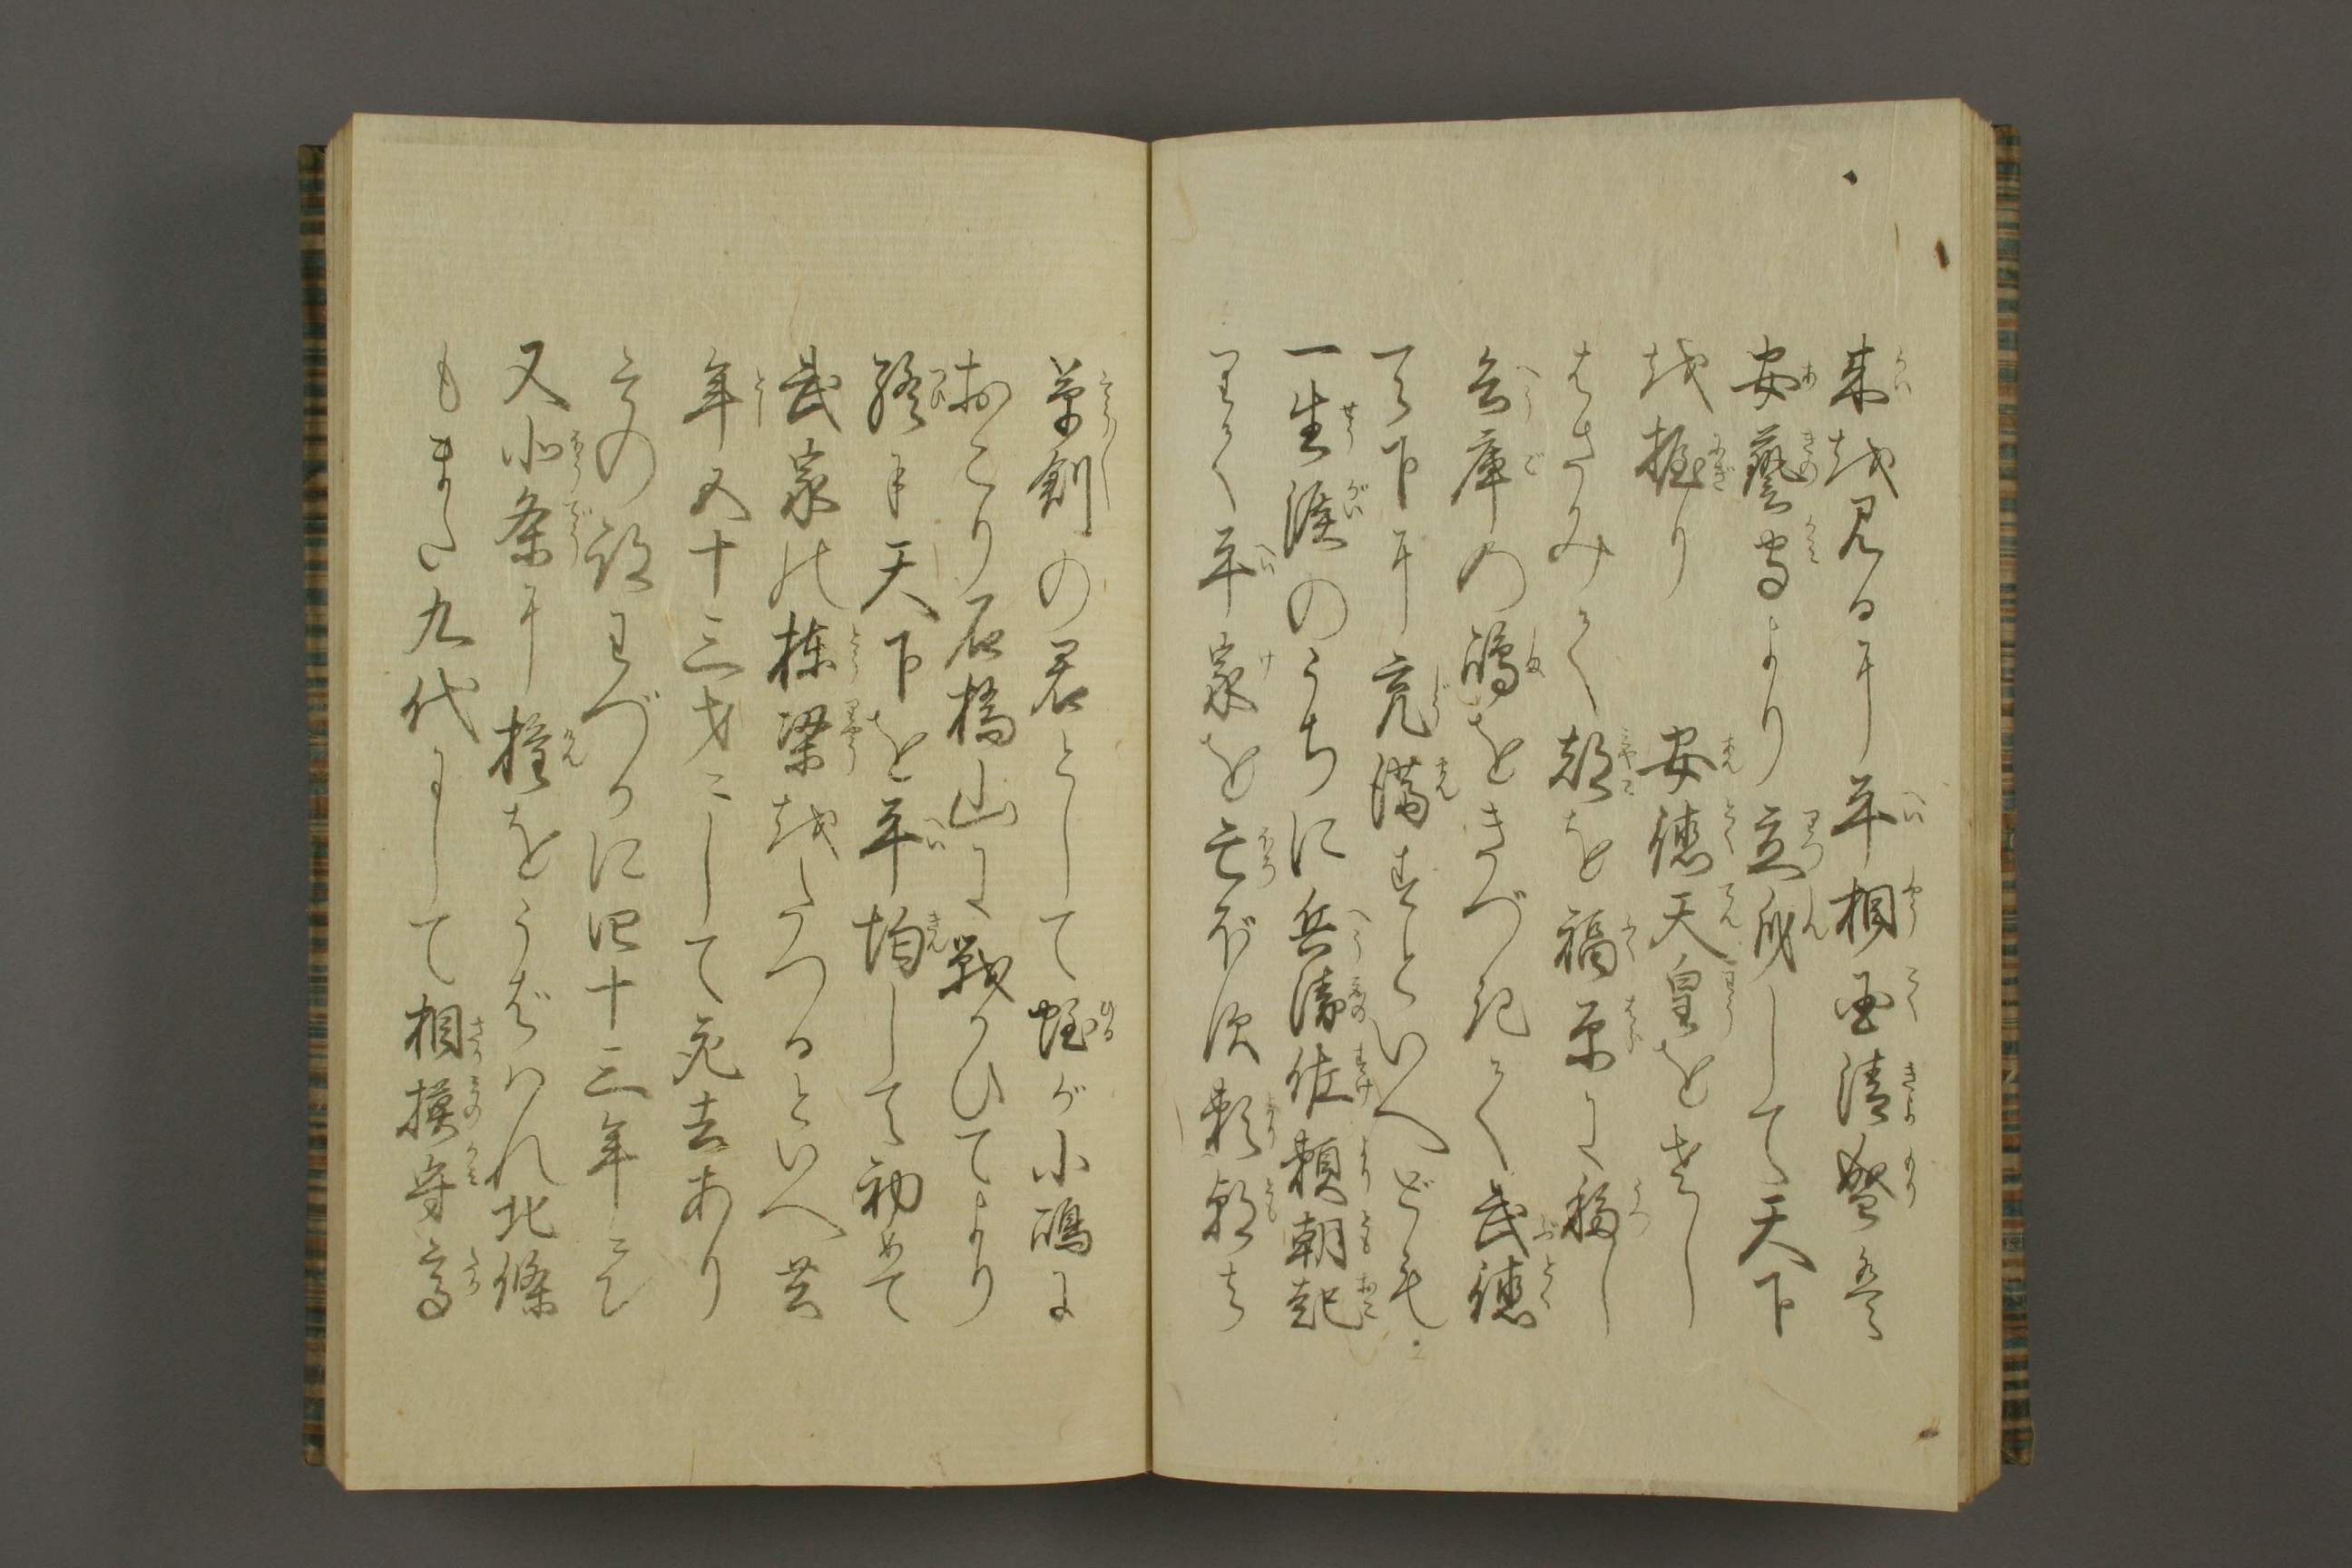 来を見るに平相国清盛は
安藝守より立身して天下
を握り　安徳天皇をさし
はさみて都を福原に移し
兵庫の嶋をきづきて武徳
天下に充満すといへども
一生涯のうちに兵衛佐頼朝起
りて平家を亡ぼす頼朝は
草創の君として蛭が小嶋に
おこり石橋山に戦かひてより
終に天下を平均して初めて
武家の棟梁をたつるといへ共
年五十三才にして死去あり
その設わづかに四十三年にて
又北条に権をうばはれ北條
もまた九代にして相摸守高